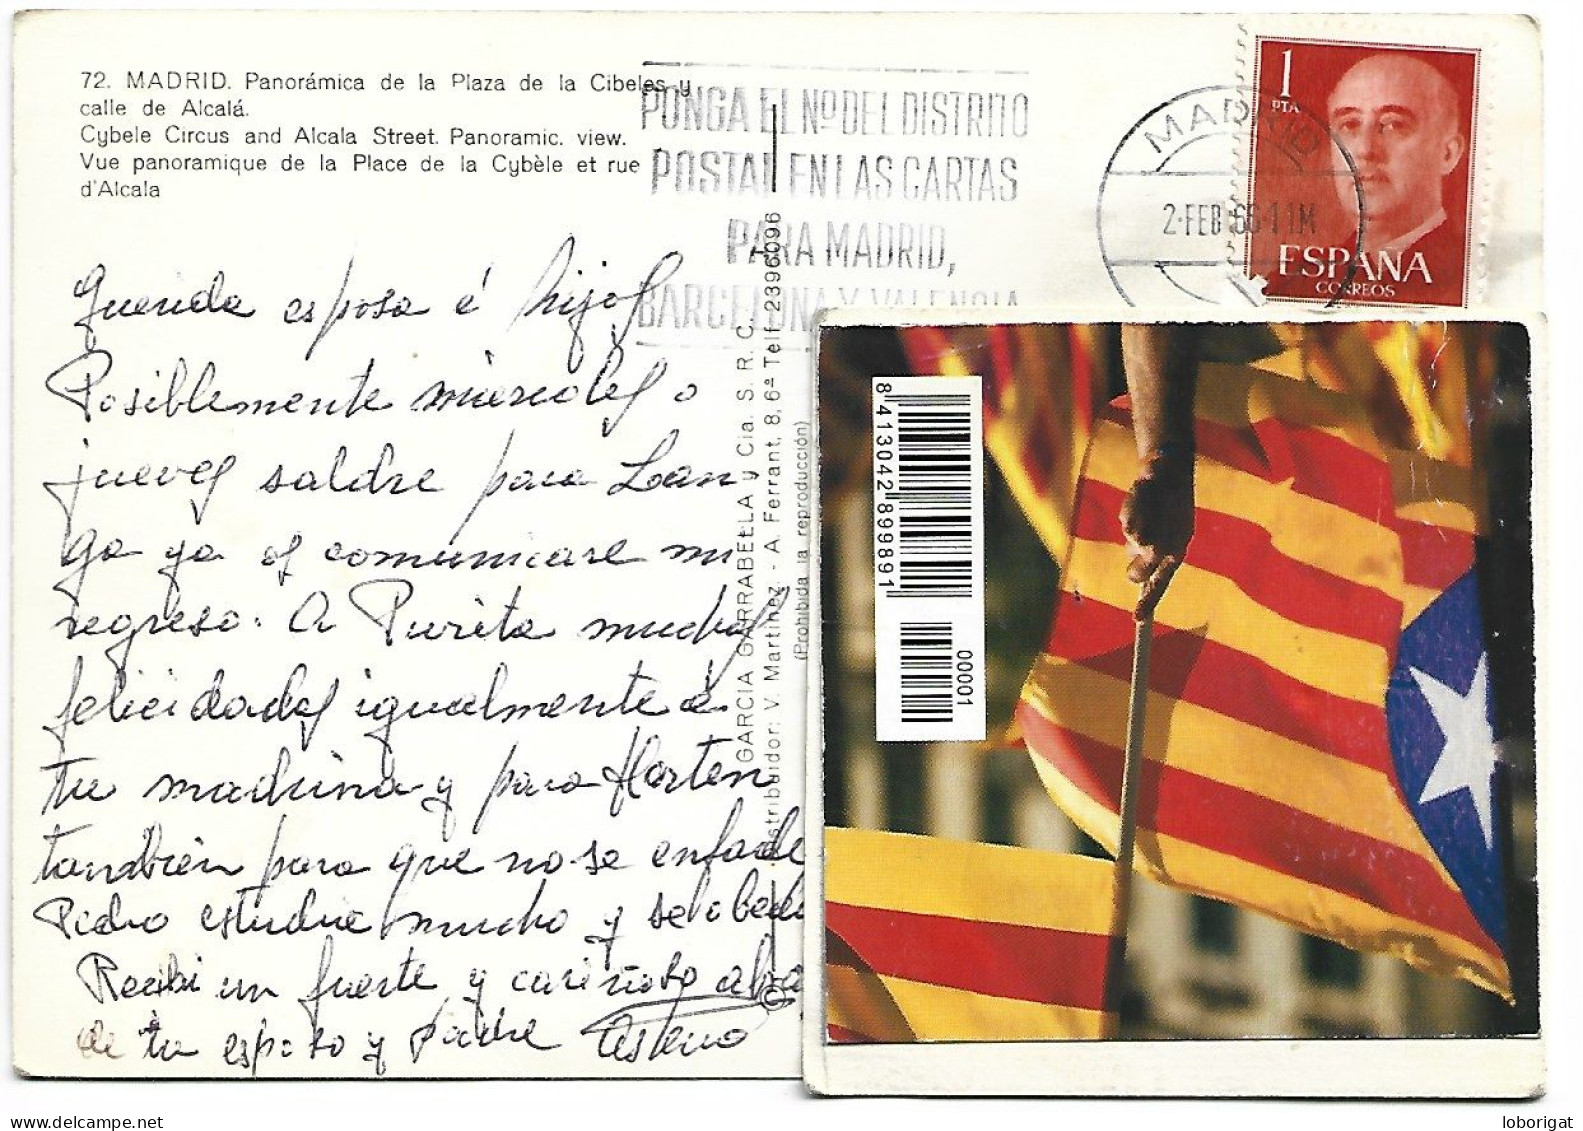 72. MADRID. Panorámica de la Plaza de la Cibeles y
calle de Alcalá.
Cybele Circus and Alcala Street. Panoramic. view.
Vue panoramique de la Place de la Cybèle et rue
d'Alcala
PONGA EL Nº DEL DISTRITO
POSTAL EN LAS CARTAS
PARA MADRID,
BARCELONA Y VALENCIA
MADRID
2·FEB 66·11M
1
PTA
ESPAÑA
CORREOS
Querida esposa é hijos
Posiblemente miercoles o
jueves saldre para Lan
ga ya os comunicare mi
regreso. A Purita muchas
felicidades igualmente á
tu madrina y para Horten
tanbién para que no se enfade
Pedro estudie mucho y se lo
Recibi un fuerte y cariñoso
de tu esposo y padre
GARCIA GARRABELLA y Cia. S. R. C.
Distribuidor: V. Martínez - A. Ferrant, 8, 6ª Telf. 2396096
(Prohibida la reproducción)
©
8 413042 899891
00001
loborigat